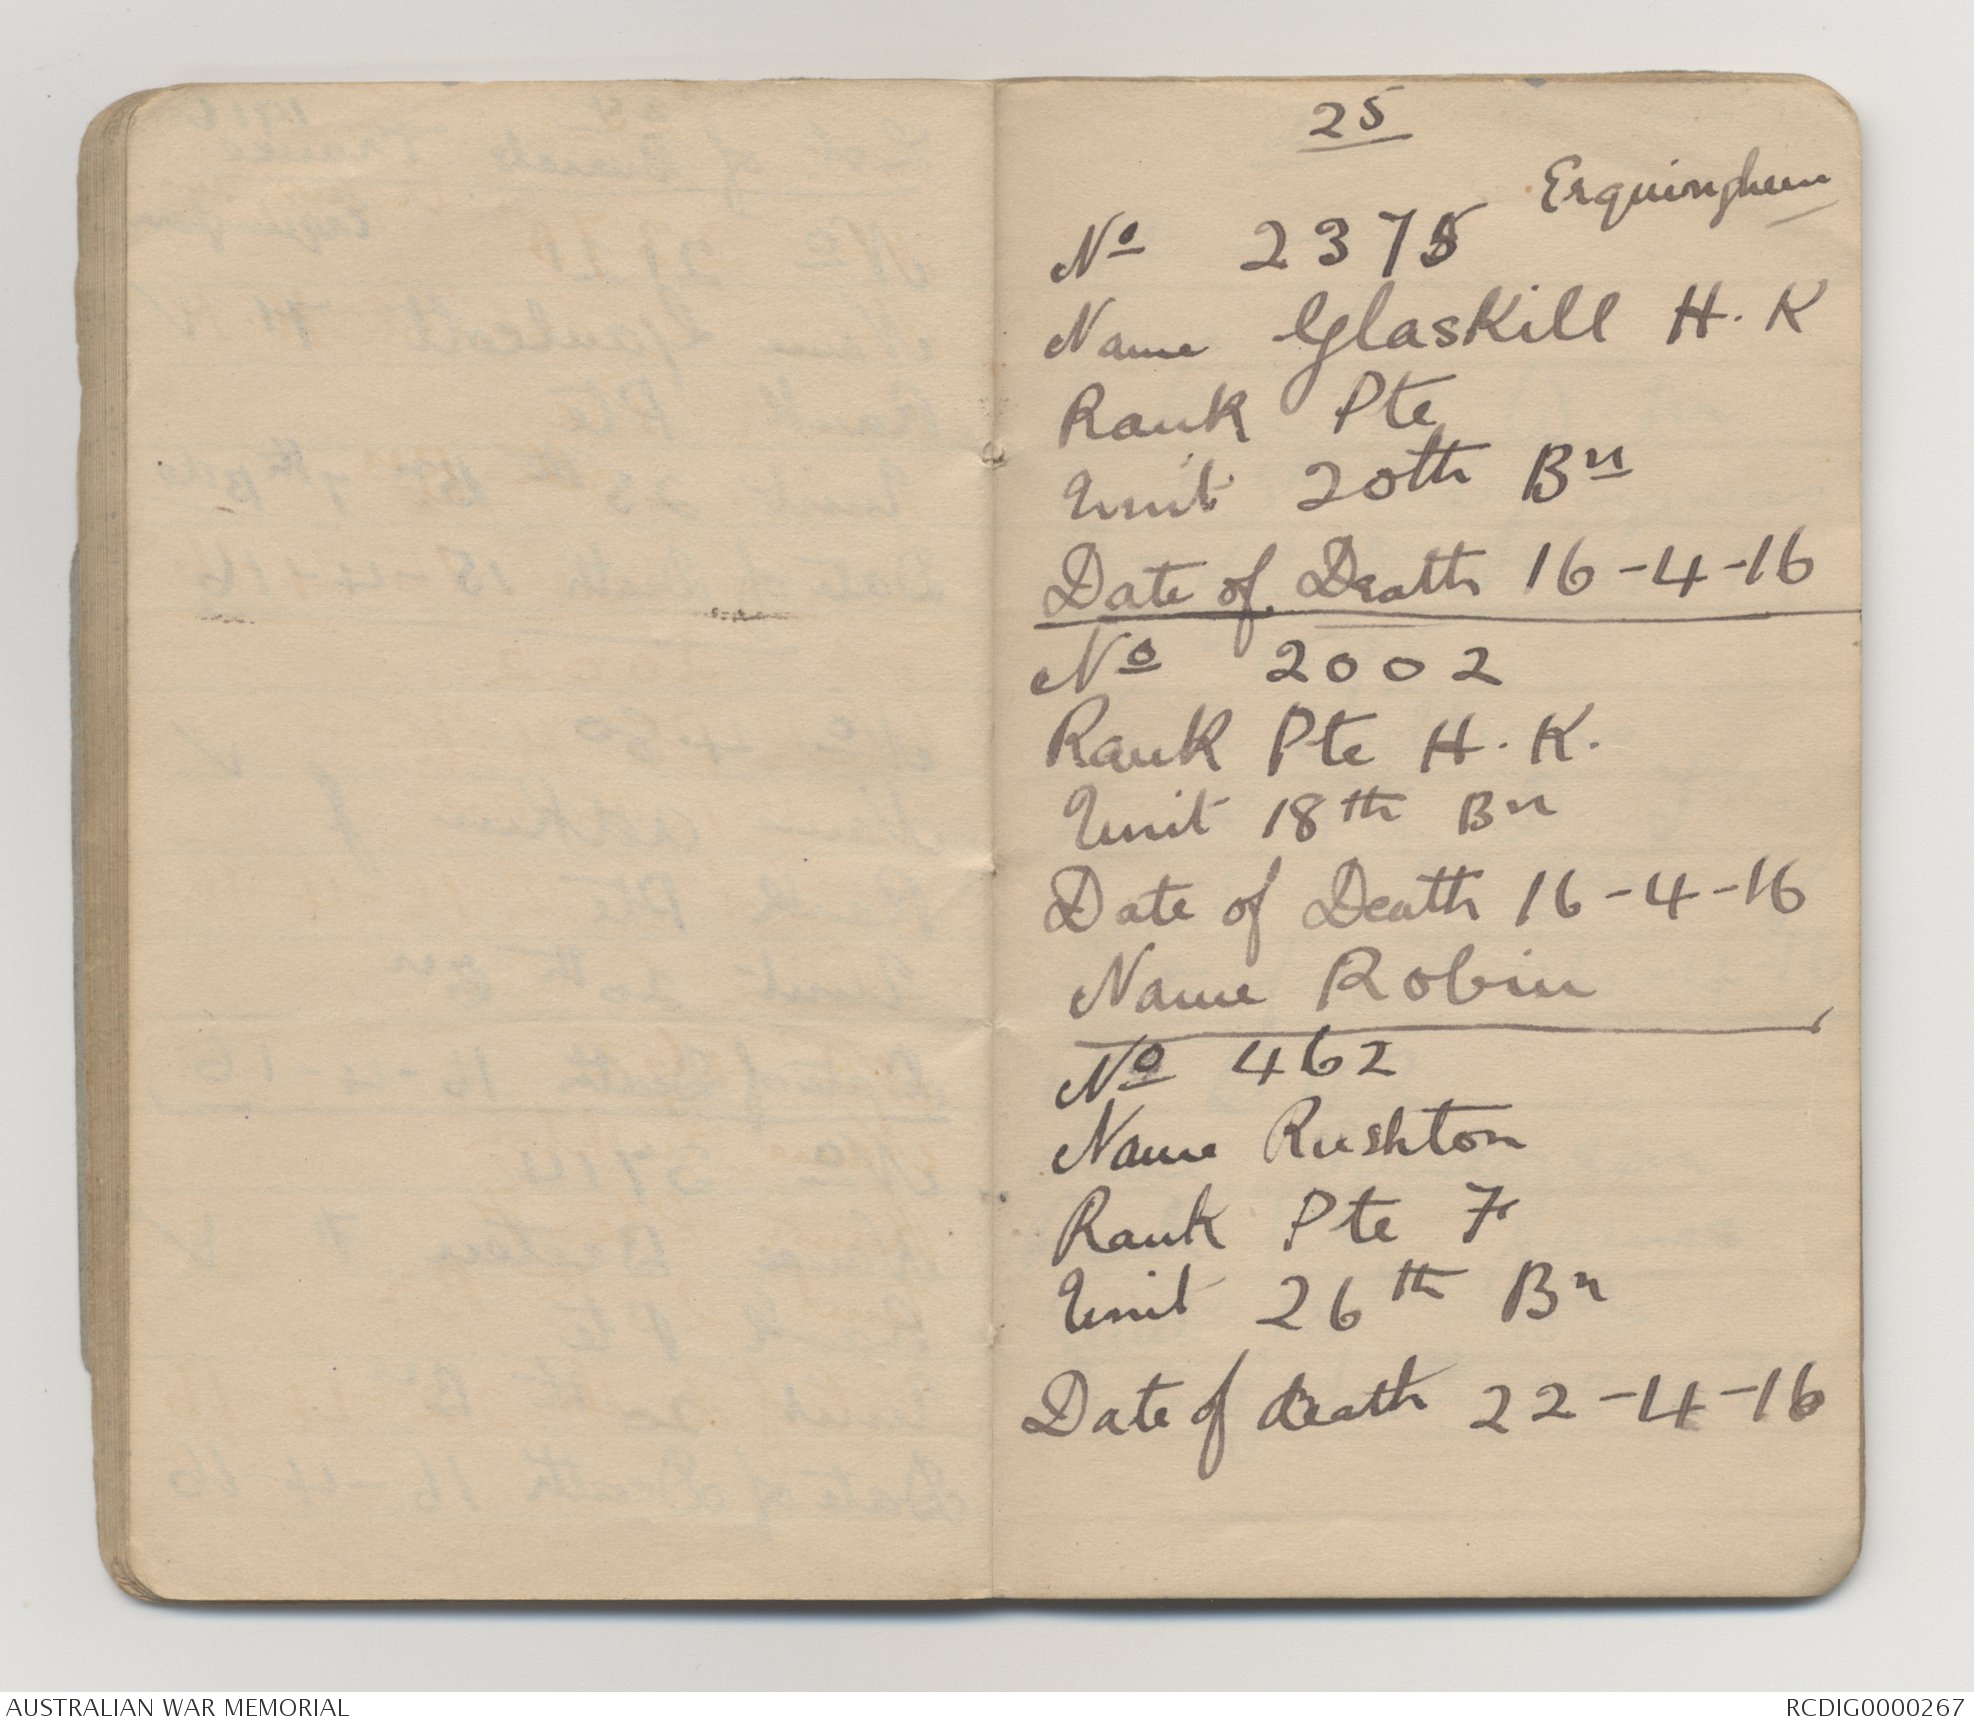 25
Erquinghem
No 2375
Name Glaskill H. K
Rank Pte
Unit 20th Bn
Date of Death 16-4-16
No 2002
Rank Pte H. K.
Unit 18th Bn
Date of Death 16-4-16
Name Robin
No 462
Name Rushton
Rank Pte F
Unit 26th Bn
Date of death 22-4-16
AUSTRALIAN WAR MEMORIAL
RCDIG0000267